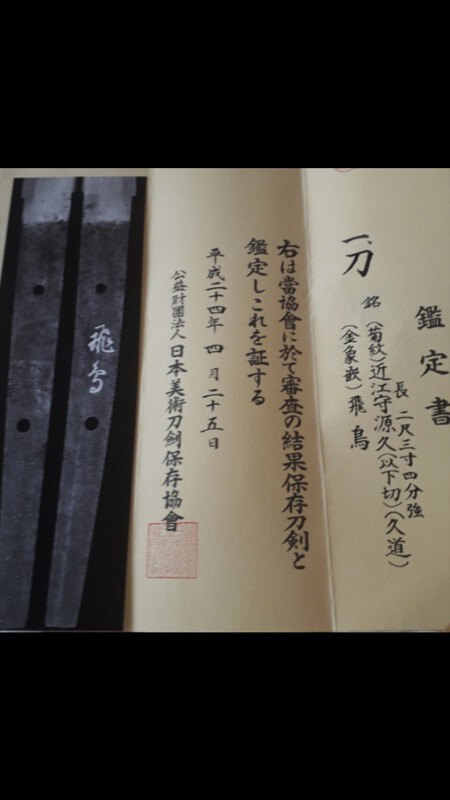 鑑定書
一、刀 銘 (菊紋)近江守源久(以下切)(久道)
(金象嵌)飛鳥
長 二尺三寸四分強
右は當協會に於て審査の結果保存刀剣と
鑑定しこれを証する
平成二十四年 四月 二十五日
公益財團法人 日本美術刀剣保存協會
飛鳥